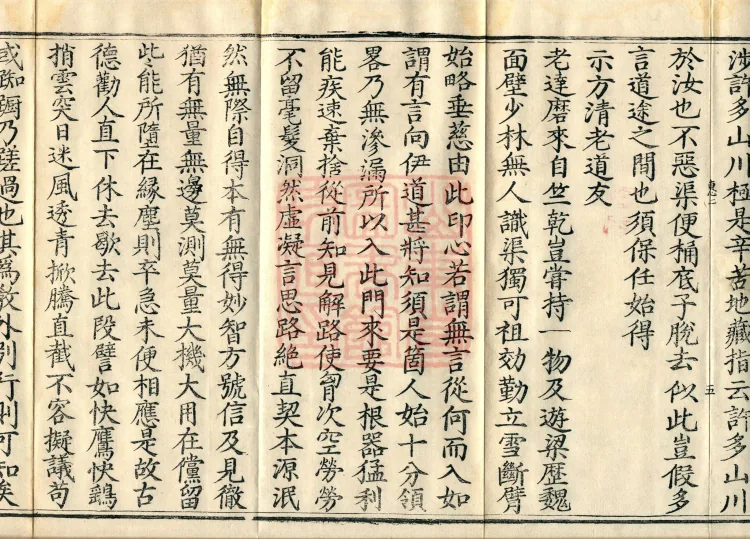 涉許多山川極是辛苦地藏指云許多山川
於汝也不惡渠便桶底子脫去似此豈假多
言道途之間也須保任始得
示方清老道友
老達磨來自竺乾豈嘗持一物及遊梁歷魏
面壁少林無人識渠獨可祖効勤立雪斷臂
始略垂慈由此印心若謂無言從何而入如
謂有言向伊道甚將知須是箇人始十分領
畧乃無滲漏所以入此門來要是根器猛利
能疾速棄捨從前知見解路使胷次空勞勞
不留毫髮洞然虛凝言思路絶直契本源泯
然無際自得本有無得妙智方號信及見徹
猶有無量無邊莫測莫量大機大用在儻留
些能所墮在緣塵則卒急未便相應是故古
德勸人直下休去歇去此段譬如快鷹快鷂
捎雲突日迷風透青掀騰直截不容擬議苟
或踟蹰乃蹉過也其爲教外別行則可知矣
五